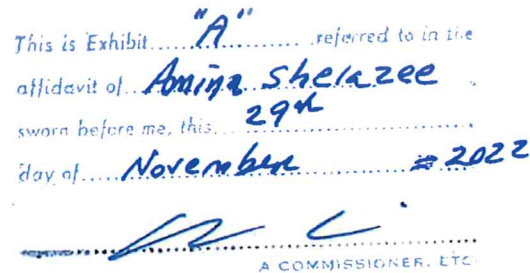 This is Exhibit "A" referred to in the
affidavit of Amina Sherazee
sworn before me, this 29th
day of November 2022
A COMMISSIONER, ETC.